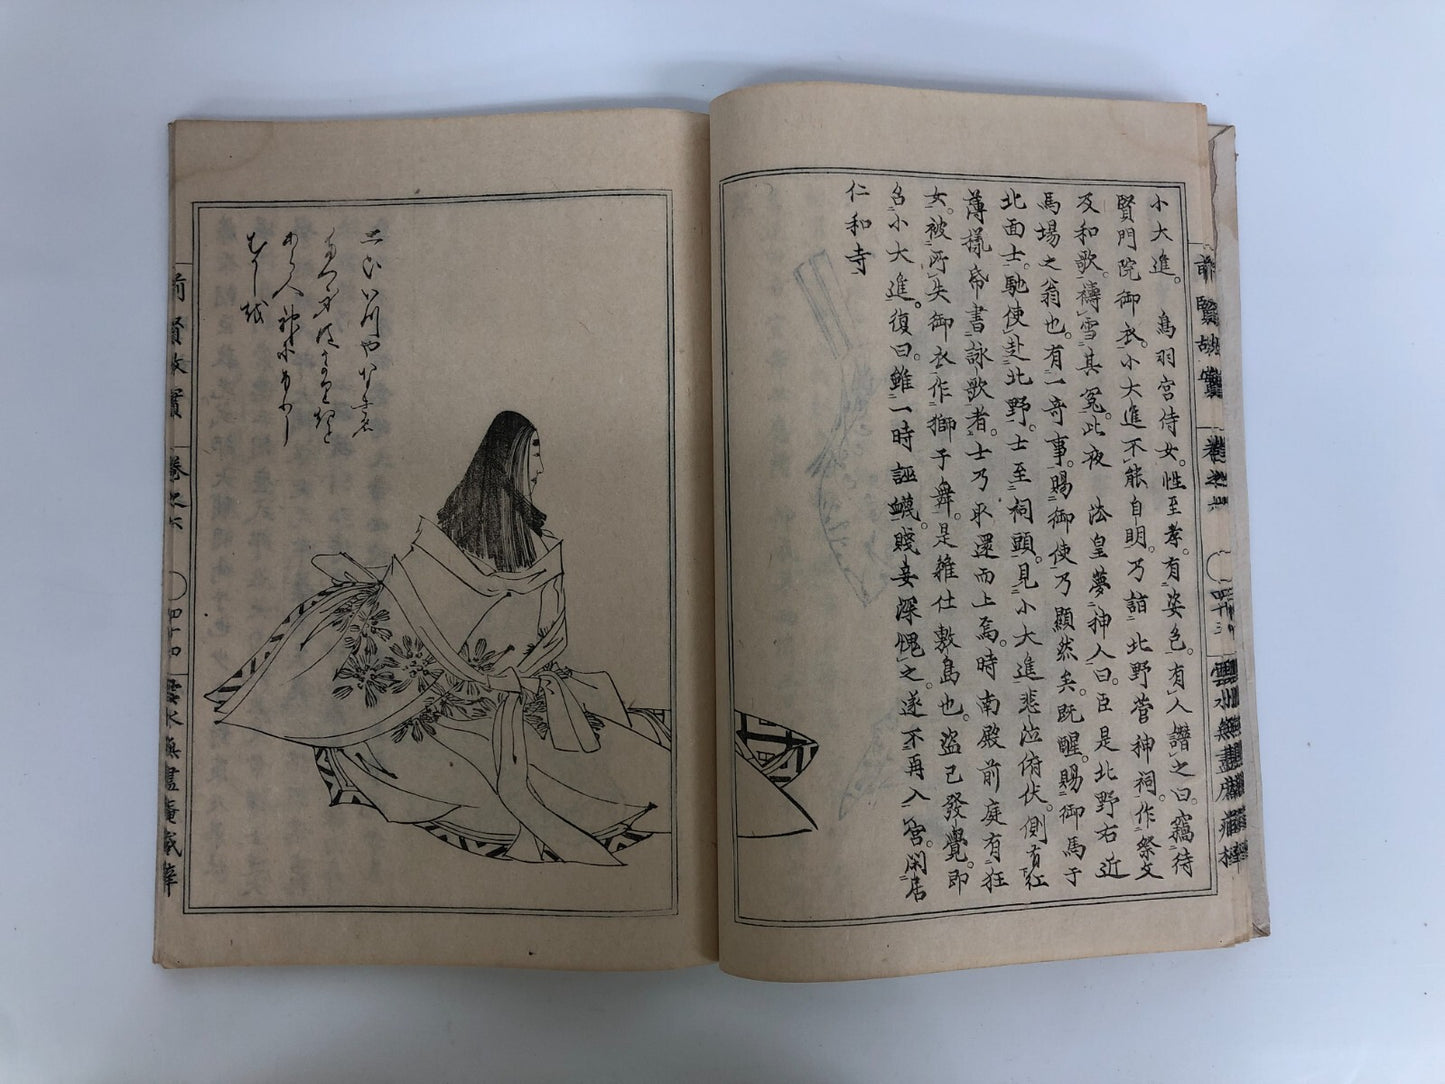 小大進。 鳥羽宮侍女。性至孝。有姿色。有人譖之曰。竊待
賢門院御衣。小大進不能自明。乃詣北野菅神祠。作祭文
及和歌。禱雪其冤。此夜 法皇夢神人曰。臣是北野右近
馬場之翁也。有一奇事。賜御使乃顯然矣。既醒。賜御馬于
北面士。馳使赴北野。士至祠頭。見小大進悲泣俯伏。側有紅
薄樣帝書詠歌者。士乃取還而上焉。時南殿前庭有狂
女。被所失御衣作獅子舞。是雑仕敷島也。盗已發覺。即
召小大進。復曰。雖一時誣衊賤妾深愧之。遂不再入宮。閑居
仁和寺
前賢故實
卷之六
四十三
おもひいつや
なき名
たつ身は
あら人神に
ありし
むかしを
前賢故實
卷之六
四十四
雲水無盡庵藏梓